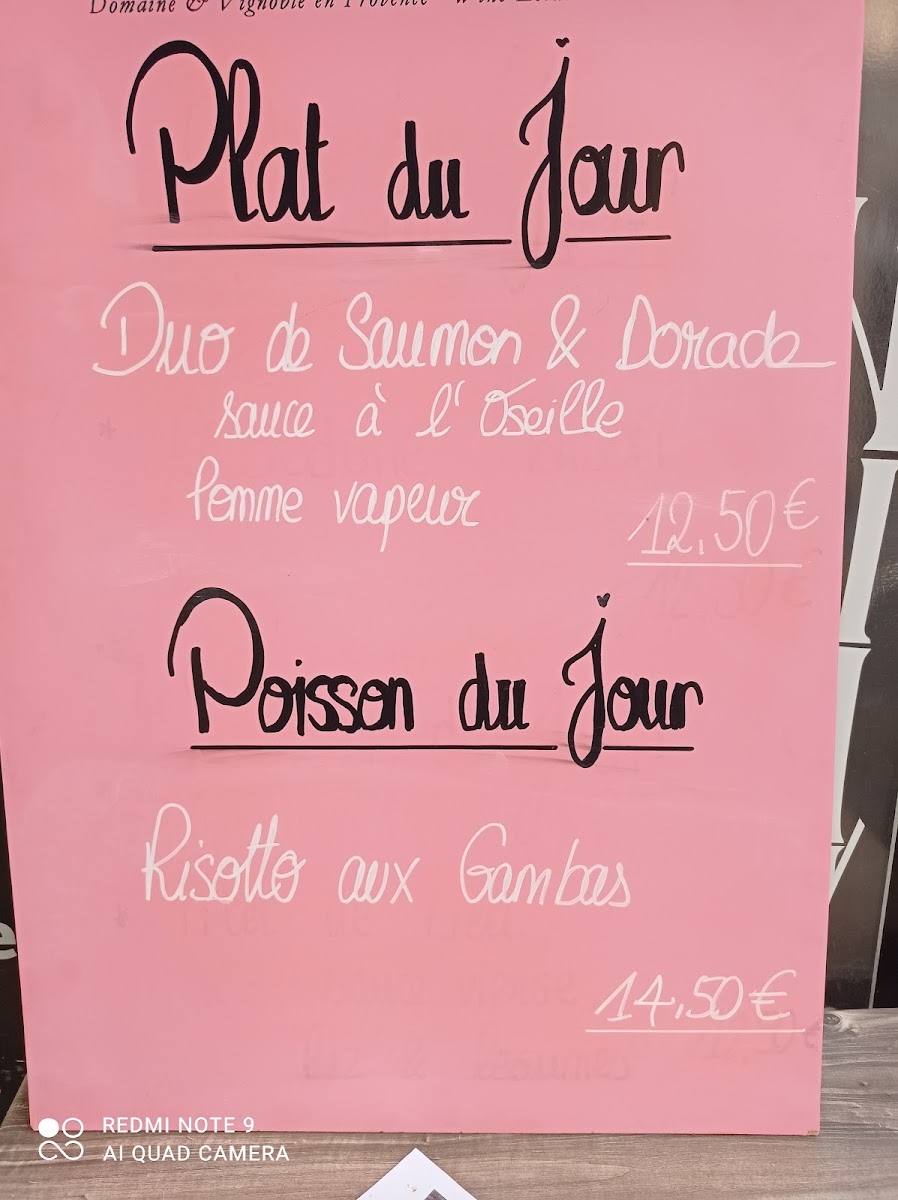 Domaine & Vignoble en Provence
Plat du Jour
Duo de Saumon & Dorade
sauce à l'Oseille
Pomme vapeur
12,50€
12,50€
Poisson du Jour
Risotto aux Gambas
14,50€
REDMI NOTE 9
AI QUAD CAMERA